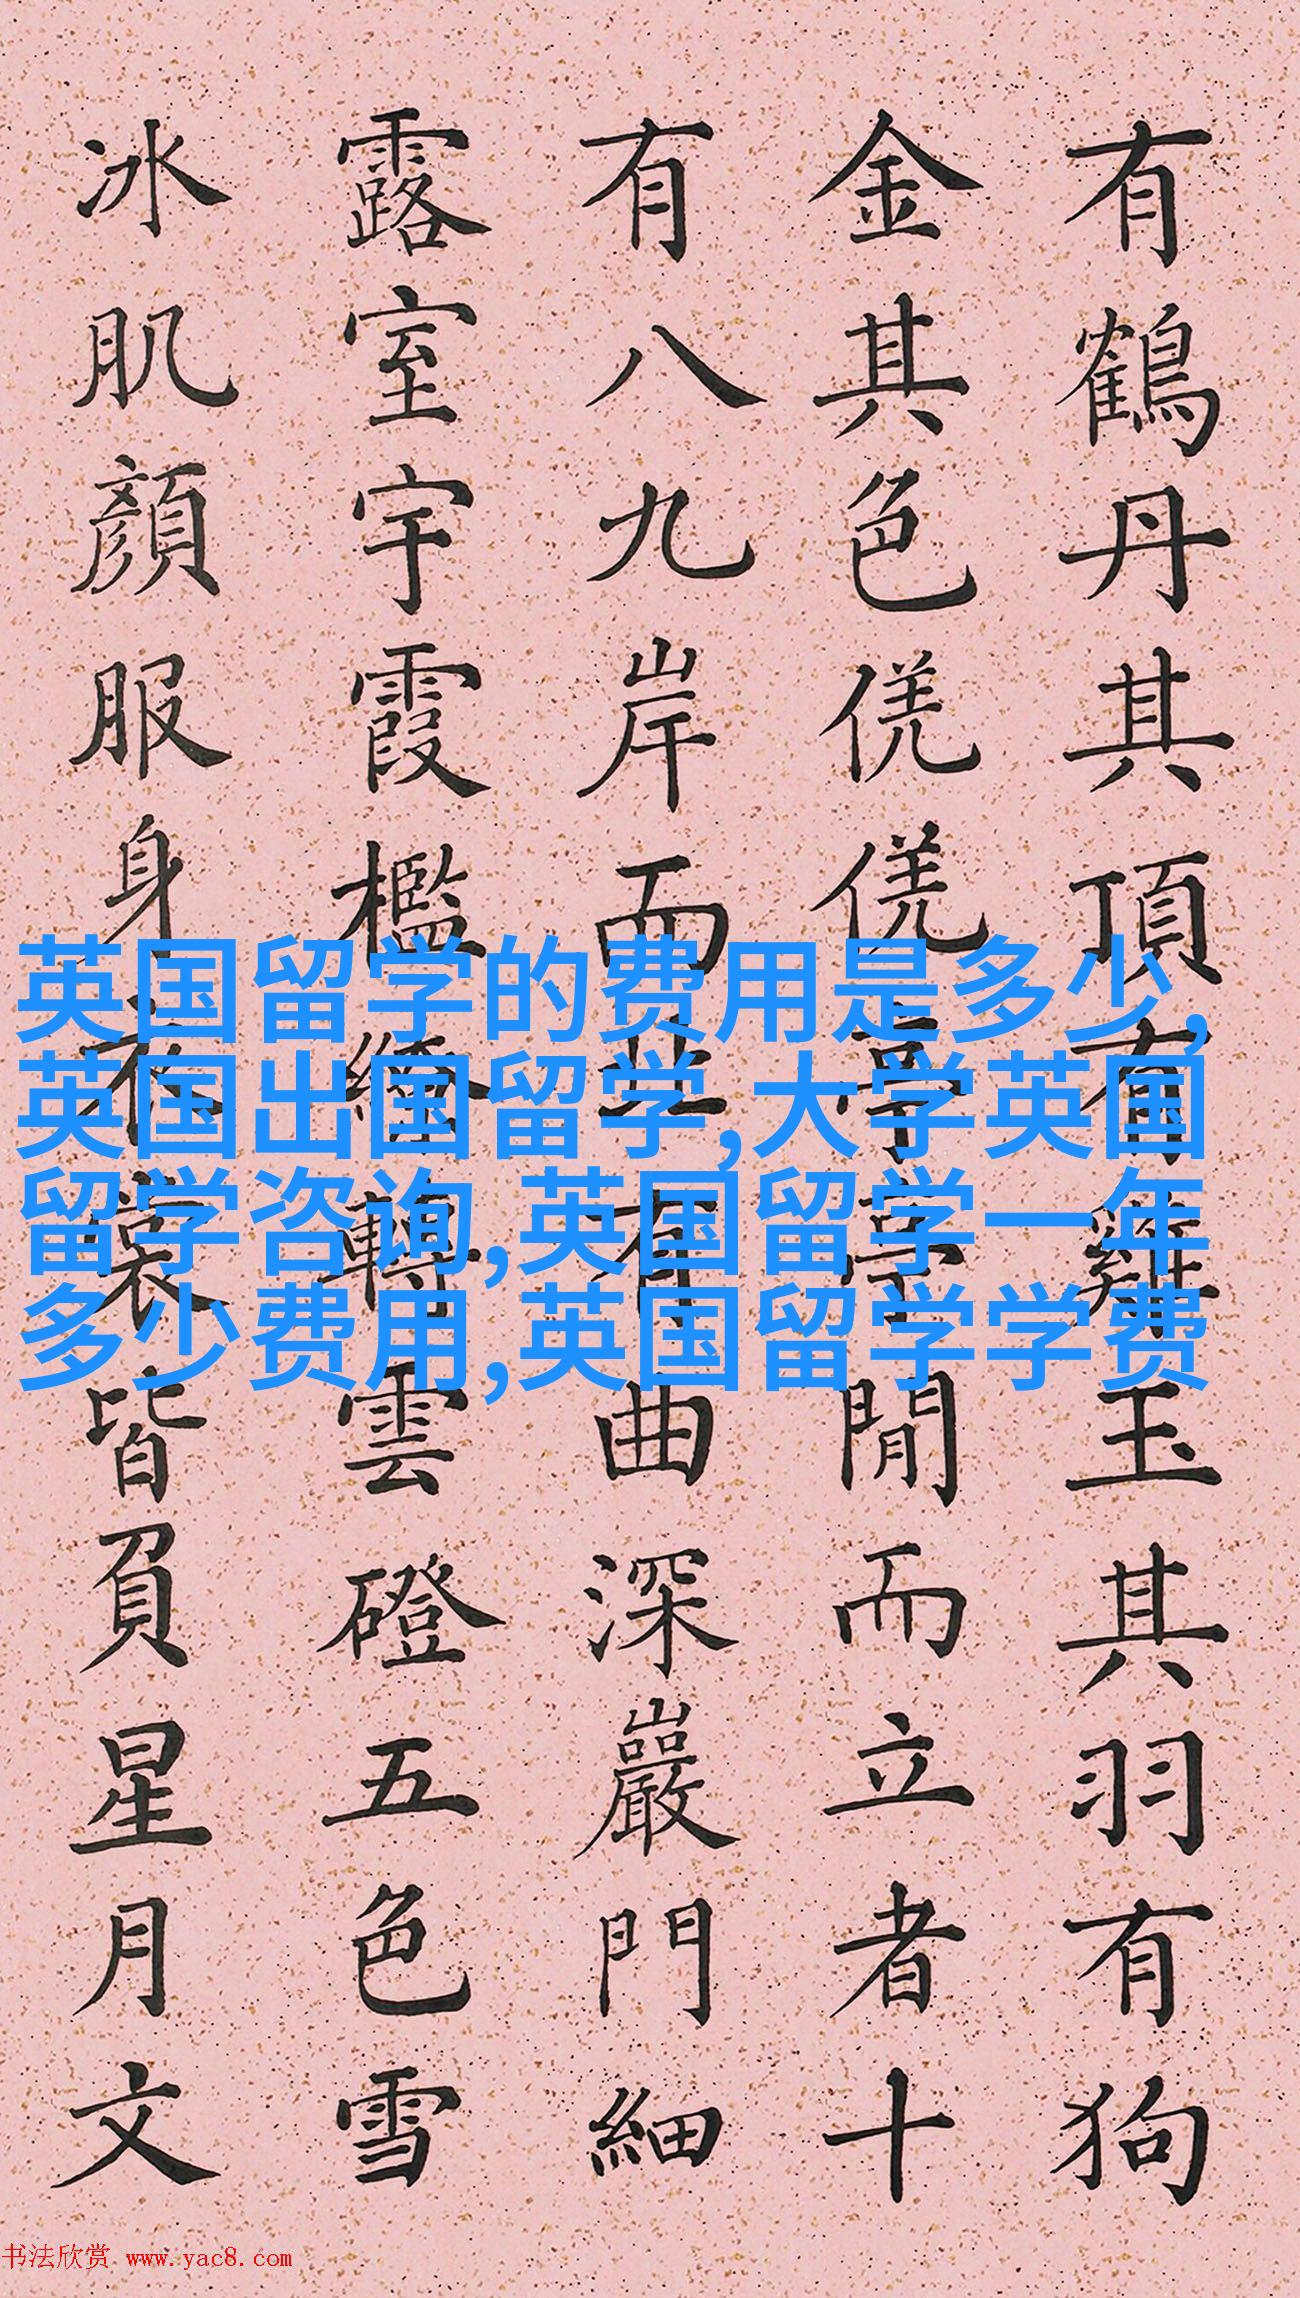 有鶴丹其頂有雞玉其羽有狗
金其色亭亭閒而立者十
有八九岸而北有曲深巖門細
露室宇霞檻轉雲磴五色雪
冰肌顏服身衣裳皆負星月文
英国留学的费用是多少,
英国出国留学,大学英国
留学咨询,英国留学一年
多少费用,英国留学学费
书法欣赏 www.yac8.com